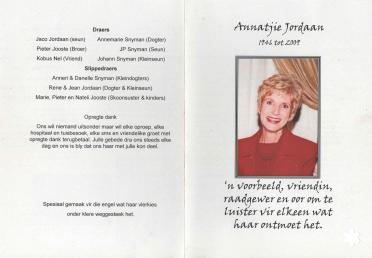 Draers
Jaco Jordaan (seun) Annemarie Snyman (Dogter)
Pieter Jooste (Broer) JP Snyman (Seun)
Kobus Nel (Vriend) Johann Snyman (Kleinseun)
Slippedraers
Anneri & Danelle Snyman (Kleindogters)
Rene & Jean Jordaan (Dogter & Kleinseun)
Marie, Pieter en Nateli Jooste (Skoonsuster & kinders)
Opregte dank
Ons wil niemand uitsonder maar wil elke oproep, elke
hospitaal en tuisbesoek, elke sms en vriendelike groet met
opregte dank terugbetaal. Julle gebede dra ons steeds elke
dag en ons is bly dat ons haar met julle kon deel.
Spesiaal gemaak vir die engel wat haar vlerkies
onder klere weggesteek het.
Annatjie Jordaan
1946 tot 2009
'n voorbeeld, vriendin,
raadgewer en oor om te
luister vir elkeen wat
haar ontmoet het.